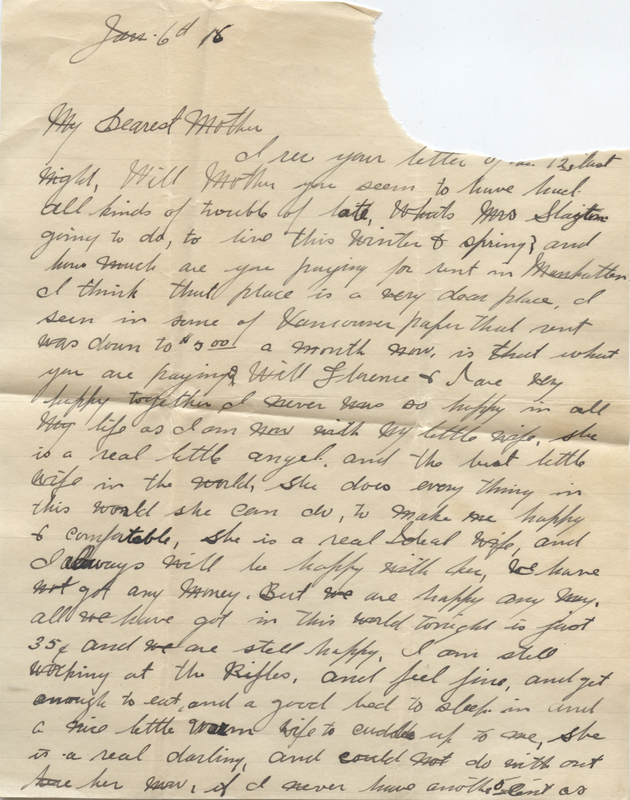 Jan. 6th 16
My Dearest Mother
I rec your letter of 12, last
night, Will Mother you seem to have had
all kinds of trouble of late, Whats Mrs Slayton
going to do, to live this winter & spring? and
how much are you paying for rent in Manhattan
I think that place is a very dear place, I
seen in some of Vancouver paper that rent
was down to $5.00 a month now, is that what
you are paying? Will Florence & I are very
happy together, I never was so happy in all
my life as I am now with my little wife, she
is a real little angel, and the best little
wife in the world, she does every thing in
this world she can do, to make me happy
& comfortable, she is a real Ideal wife, and
I always will be happy with her, We have
not got any money. But we are happy any way,
all we have got in this world tonight is just
35¢ and we are still happy, I am still
working at the Rifles, and feel fine, and get
enough to eat, and a good bed to sleep in and
a nice little warm wife to cuddle up to me, she
is a real darling, and could not do with out
her now, if I never have another cent as